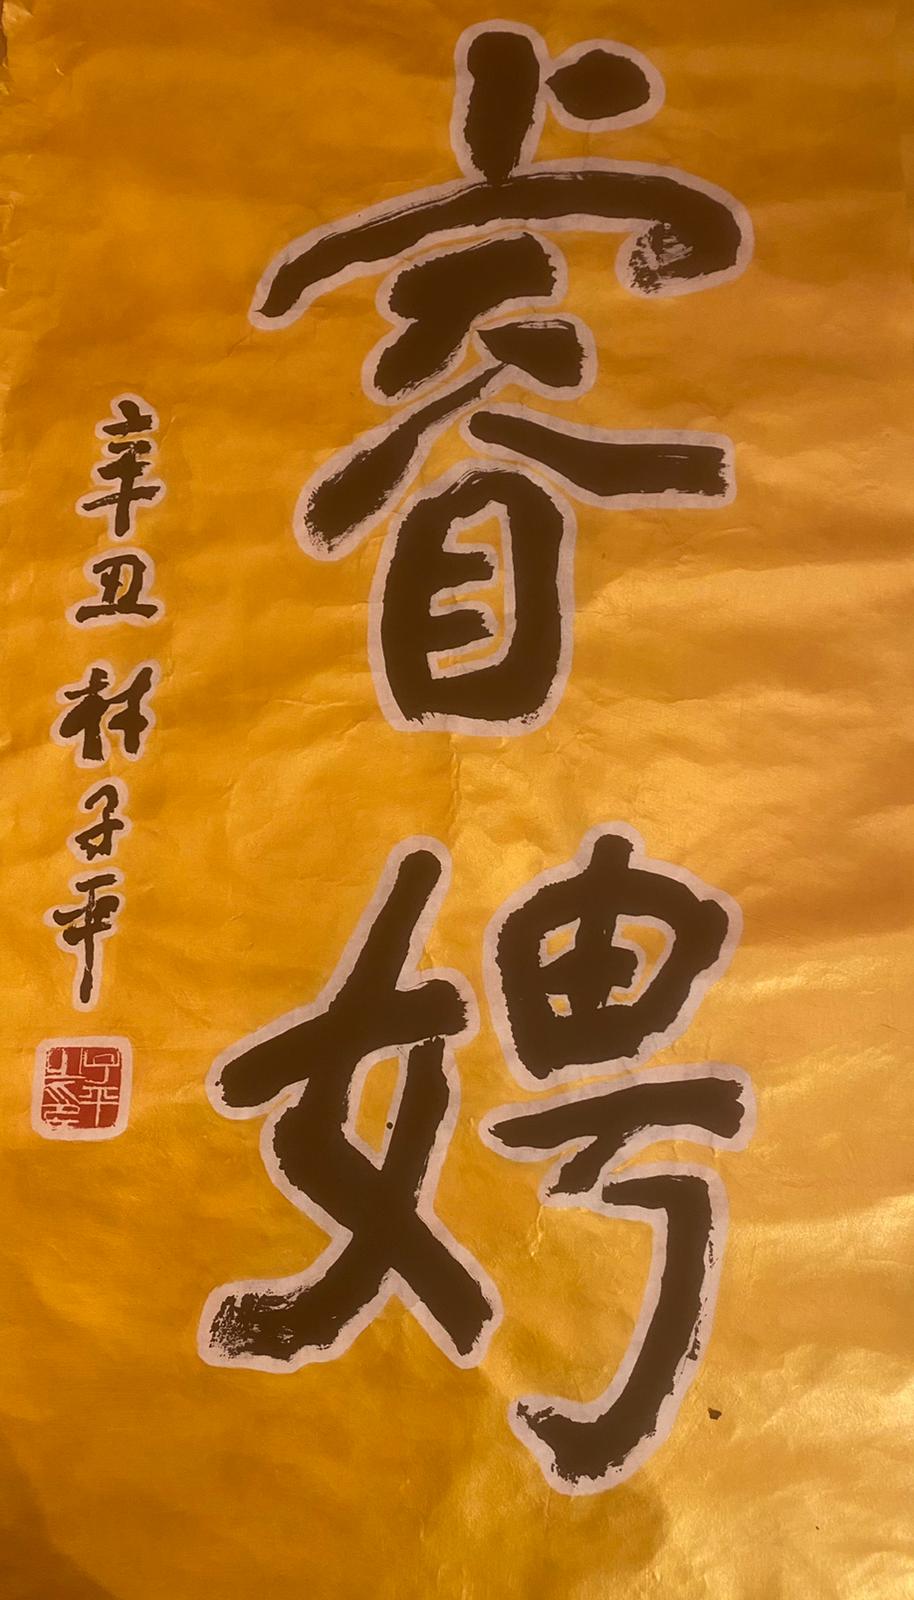 睿娉
辛丑 林子平